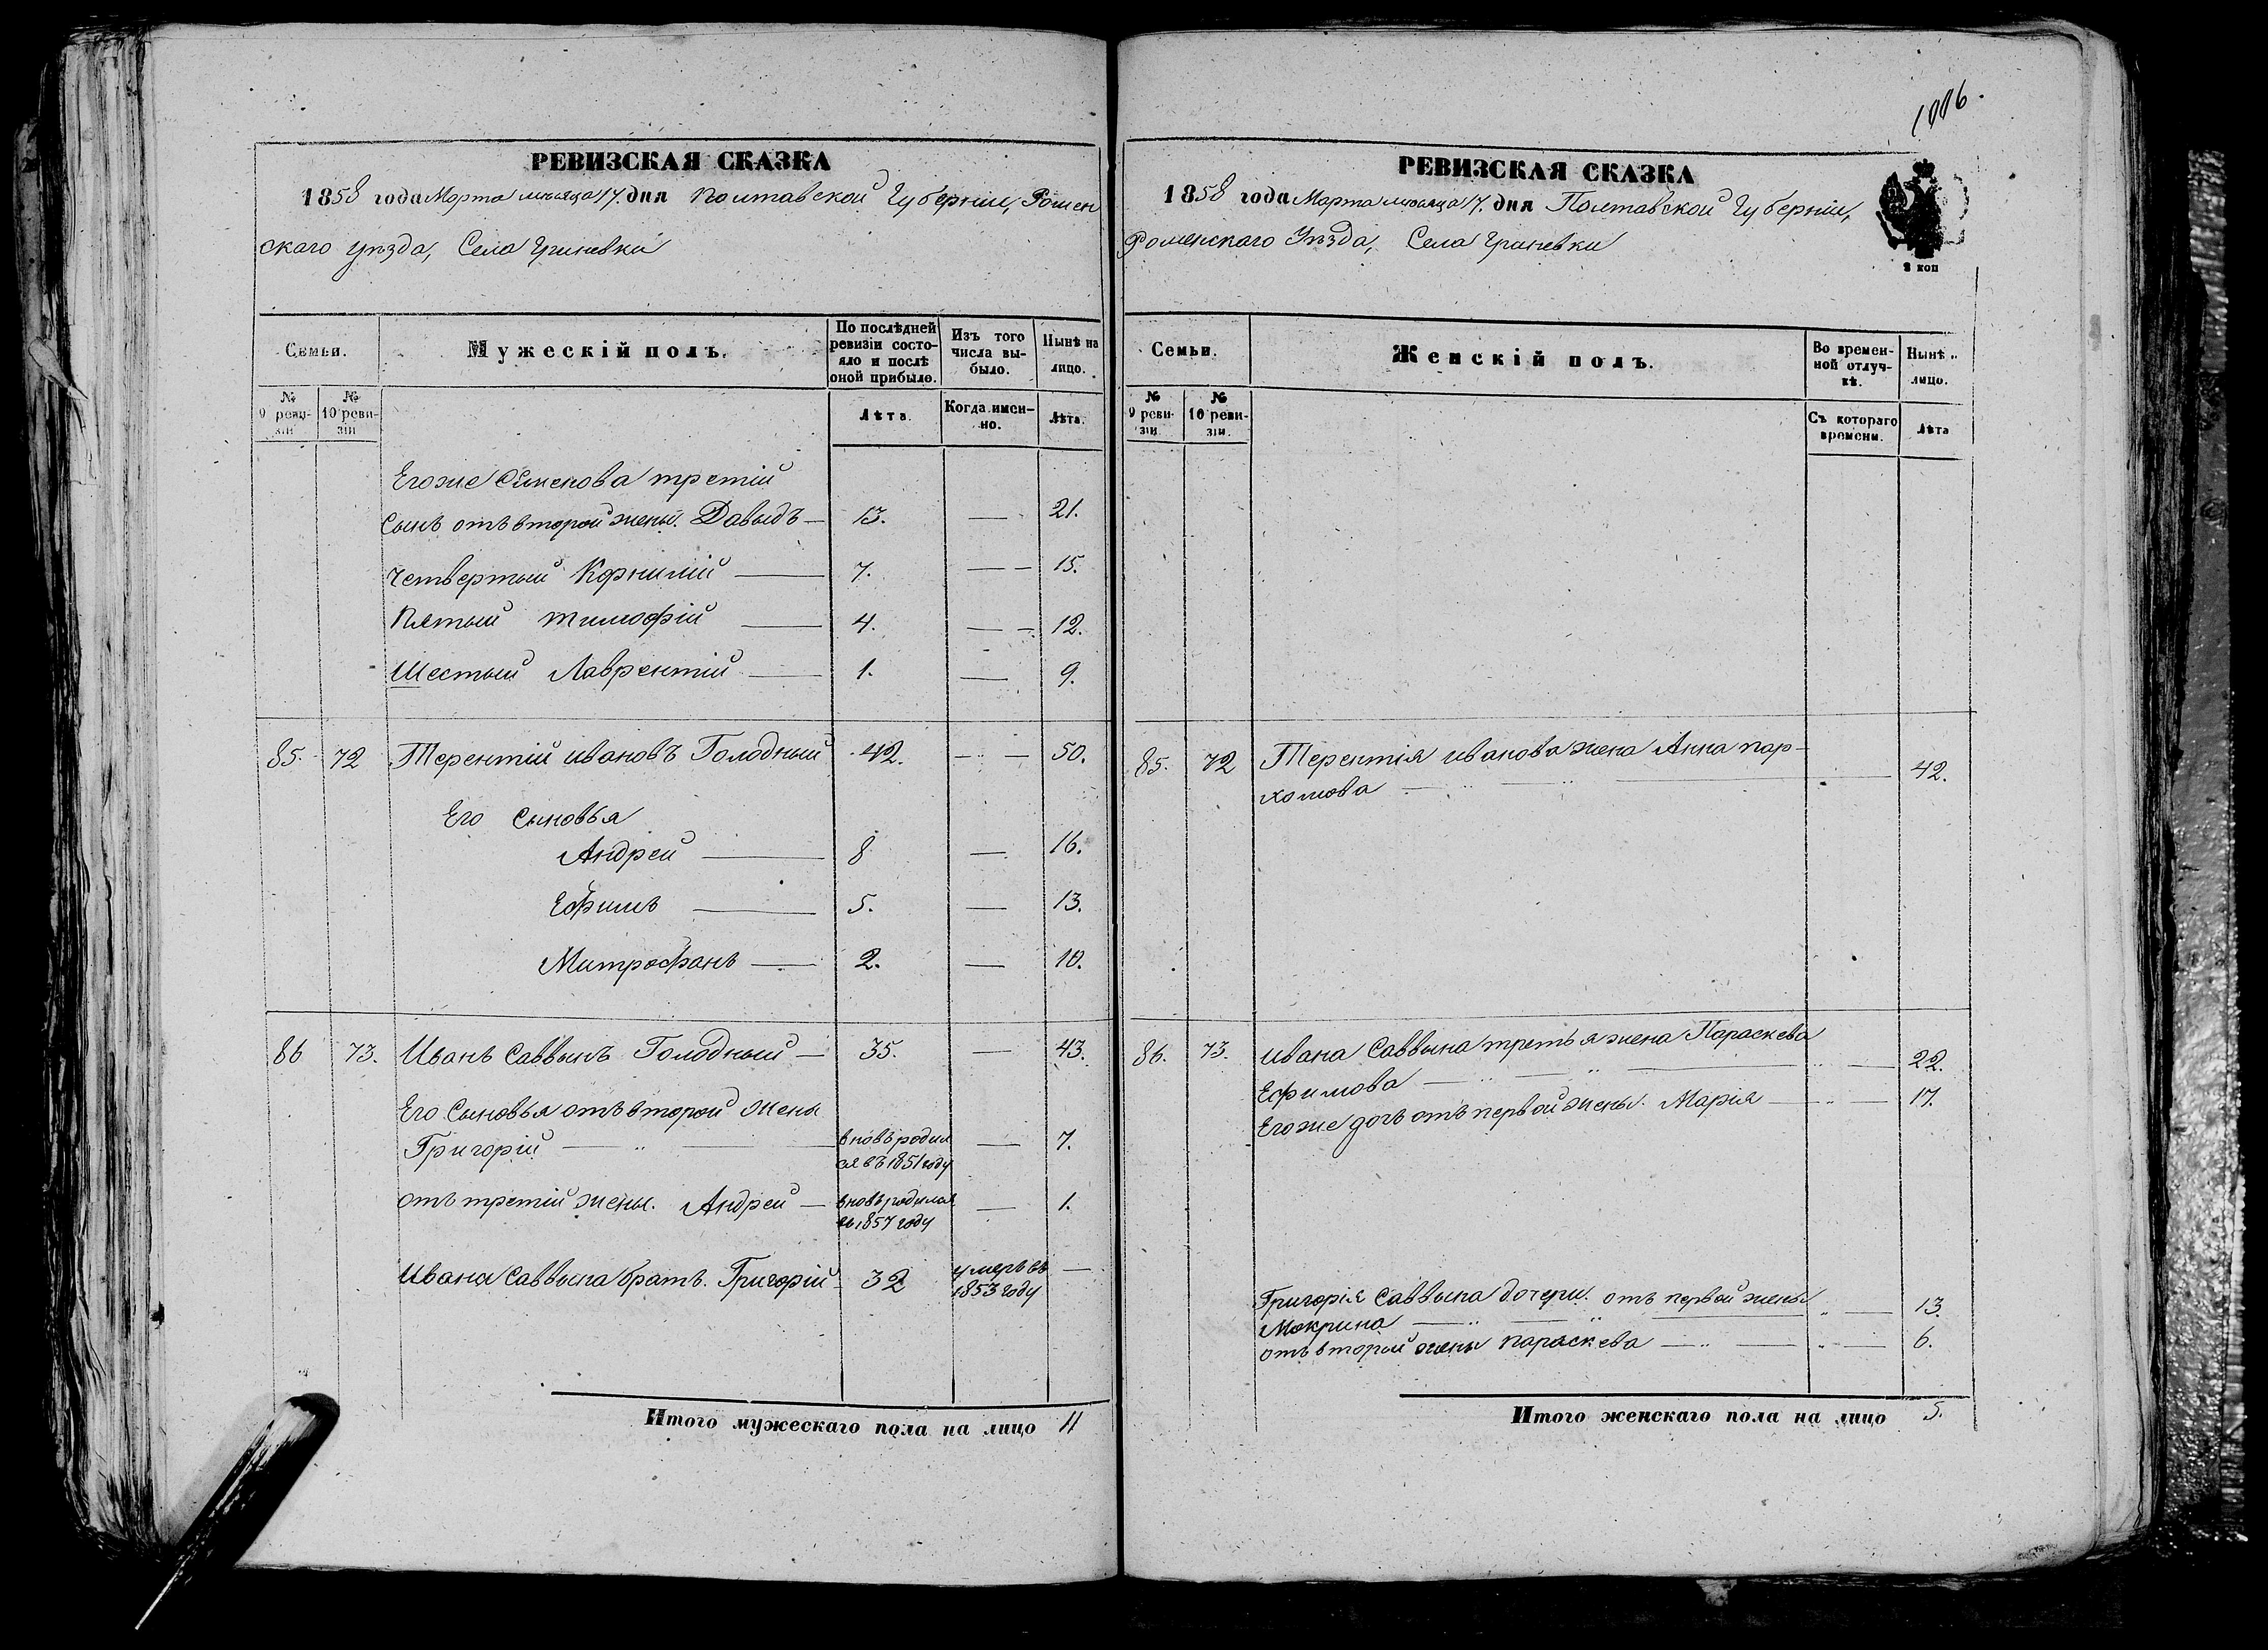 РЕВИЗСКАЯ СКАЗКА
1858 года Марта мѣсяца 17. дня Полтавской Губерніи, Ромен
скаго уѣзда, Села Гриневки
Семьи.
Мужескій полъ.
По послѣдней ревизіи состояло и послѣ оной прибыло.
Изъ того числа выбыло.
Нынѣ на лицо.
№ 9 ревизіи
№ 10 ревизіи
Лѣта.
Когда именно.
Лѣта.
Егоже Семенова третій
сынъ отъ второй жены. Давыдъ — 13. — 21.
Четвертый Корнилій — 7. — — 15.
Пятый Тимофій — 4. — — 12.
Шестый Лаврентій — 1. — 9.
85. 72 Терентій Ивановъ Голодный 42. — — 50.
Его сыновья
Андрей — 8 — 16.
Ефимъ — 5. — 13.
Митрофанъ — 2. — 10.
86 73. Иванъ Саввынъ Голодный — 35. — 43.
Его Сыновья отъ второй жены
Григорій — " — вновь родил — 7.
ся въ 1851 году
отъ третій жены. Андрей — вновь родился — 1.
въ 1857 году
Ивана Саввына братъ. Григорій 32 умеръ въ —
1853 году
Итого мужескаго пола на лицо 11
1006.
РЕВИЗСКАЯ СКАЗКА
1858 года Марта мѣсяца 17. дня Полтавской Губерніи,
Роменскаго Уѣзда, Села Гриневки
2 коп
Семьи.
Женскій полъ.
Во временной отлучкѣ.
Нынѣ
лицо.
№ 9 ревизіи
№ 10 ревизіи.
Съ котораго времени.
Лѣта
85. 72 Терентія Иванова жена Анна Пар-
хомова — " — " — 42.
86. 73. Ивана Саввына третья жена Параскева
Ефимова — " — " — 22.
Егоже дочь отъ первой жены. Марія — " — 17.
Григорія Саввына дочери. отъ первой жены
Мокрина — " — " — 13.
отъ второй жены Параскева — " — " — 6.
Итого женскаго пола на лицо 5.